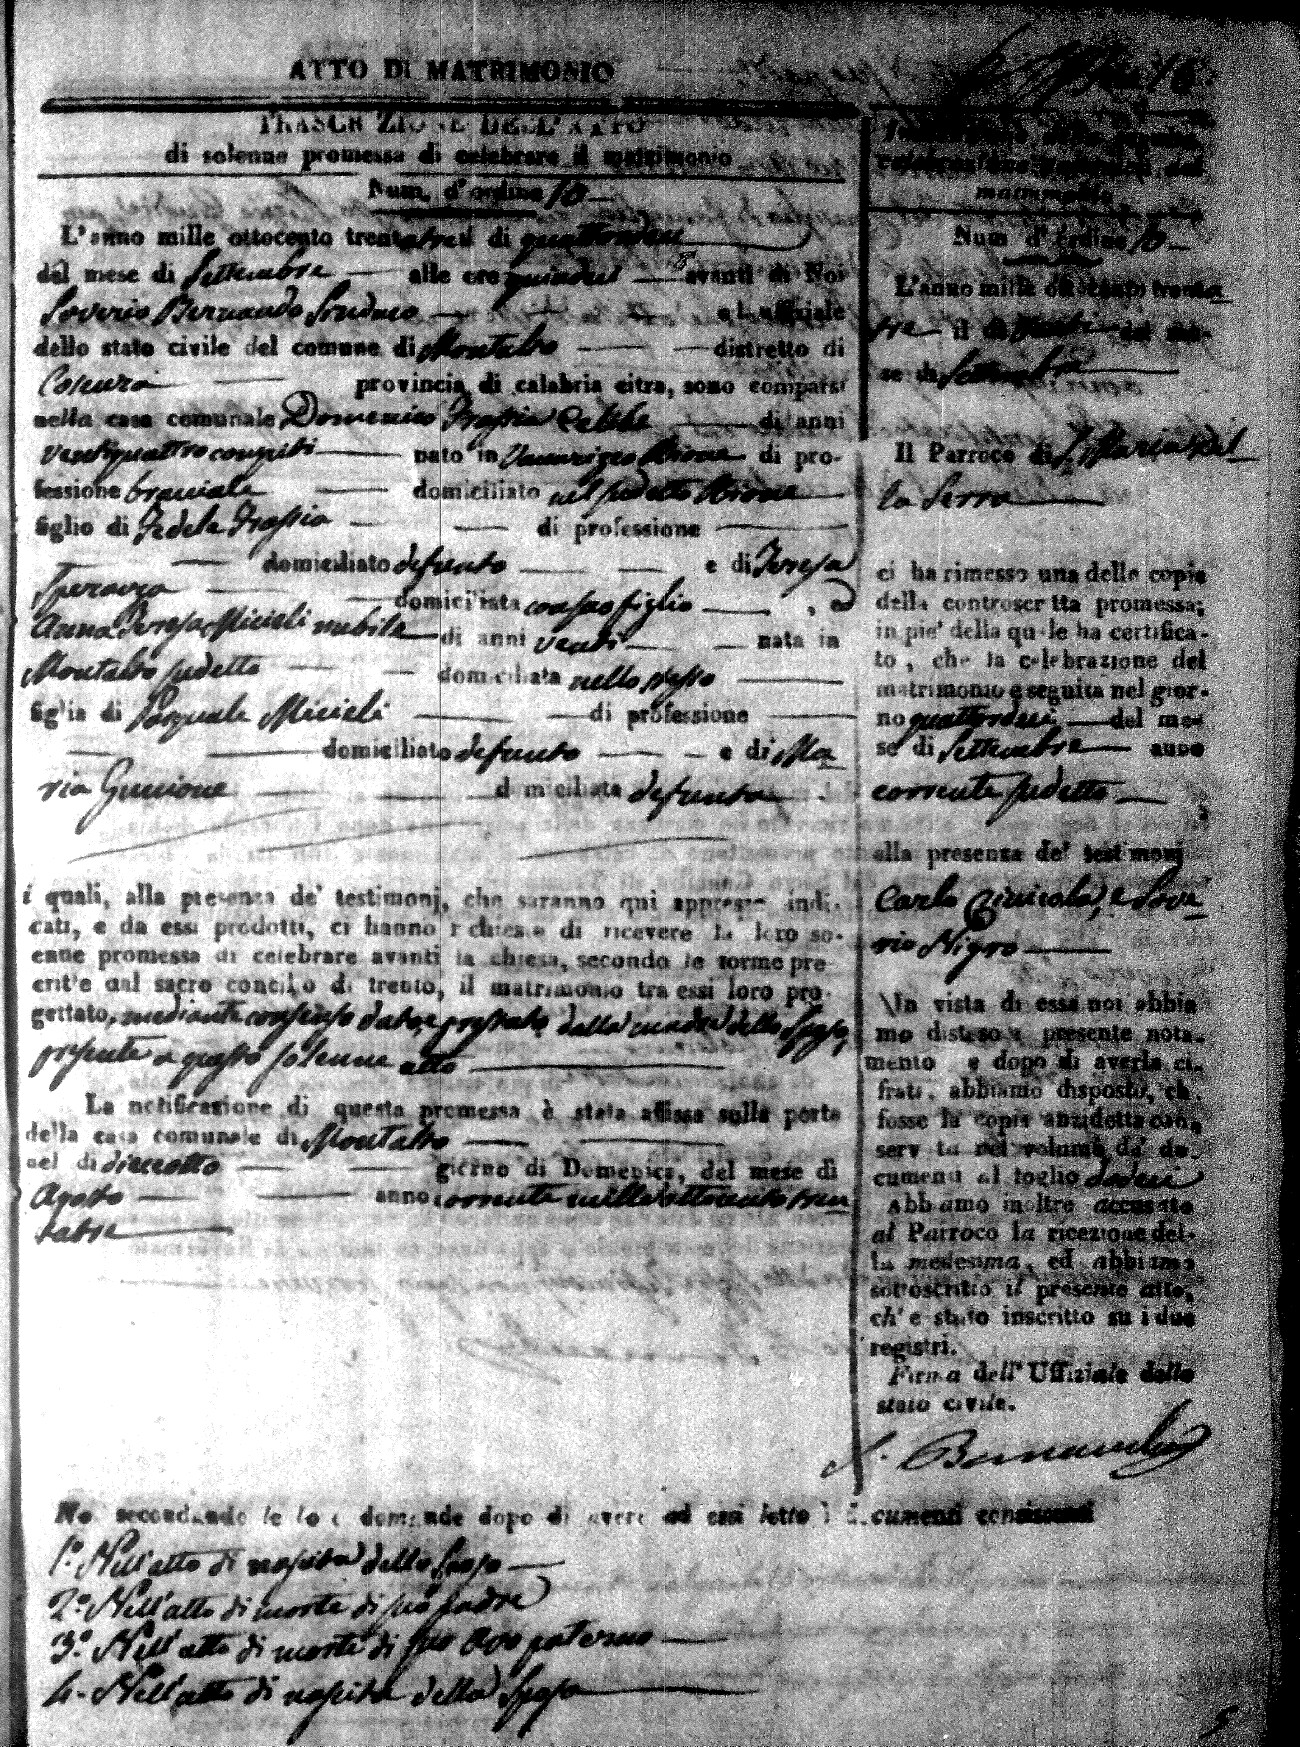 ATTO DI MATRIMONIO
TRASCRIZIONE DELL'ATTO
di solenne promessa di celebrare il matrimonio
Num. d'ordine 10
L'anno mille ottocento trentatre li di quattordeci
del mese di Settembre alle ore quindeci avanti di Noi
Soverio Bernaudo Sindaco e l. uffiziale
dello stato civile del comune di Montalto distretto di
Cosenza provincia di calabria citra, sono comparsi
nella casa comunale Domenico di anni
ventiquattro compiti nato in di pro-
fessione bracciale domiciliato nel sudetto
figlio di Fedele di professione
domiciliato defunto e di Teresa
Speranza domiciliata con suo figlio, ed
Anna Teresa Micieli nubile di anni venti nata in
Montalto sudetto domiciliata nello stesso
figlia di Pasquale Micieli di professione
domiciliato defunto e di Ma
ria domiciliata defunta
i quali, alla presenza de' testimonj, che saranno qui appresso indi-
cati, e da essi prodotti, ci hanno richiesto di ricevere la loro so-
enne promessa di celebrare avanti la chiesa, secondo le forme pre
critte dal sacro concilio di trento, il matrimonio tra essi loro pro
gettato, mediante consenso dato e prestato dalla madre dello Sposo,
presente a questo solenne atto
La notificazione di questa promessa è stata affissa sulla porta
della casa comunale di Montalto
nel dì dieciotto giorno di Domenica, del mese di
Agosto anno corrente mille ottocento tren
tatre
Num d'ordine 10
L'anno mille ottocento trenta
tre il di venti del me-
se di Settembre
Il Parroco di S. Maria del
la Serra
ci ha rimesso una delle copie
della controscritta promessa;
in pie' della quale ha certifica-
to, che la celebrazione del
matrimonio è seguita nel gior-
no quattordeci del me-
se di Settembre anno
corrente sudetto
alla presenza de' testimonj
Carlo e Save
rio Nigro
In vista di essa noi abbia
mo disteso il presente nota-
mento e dopo di averla ci-
frata, abbiamo disposto, che
fosse la copia anzidetta con-
servata nel volume de' do-
cumenti al foglio dodeci
Abbiamo inoltre accusato
al Parroco la ricezione del-
la medesima, ed abbiamo
sottoscritto il presente atto,
ch' e stato inscritto su i due
registri.
Firma dell' Uffiziale dello
stato civile.
S. Bernaudo
No secondando le loro domande dopo di avere ad essi letto i documenti consistenti
1.º Nell'atto di nascita dello Sposo
2.º Nell'atto di morte di suo padre
3.º Nell'atto di morte di suo avo paterno
4. Nell'atto di nascita della Sposa